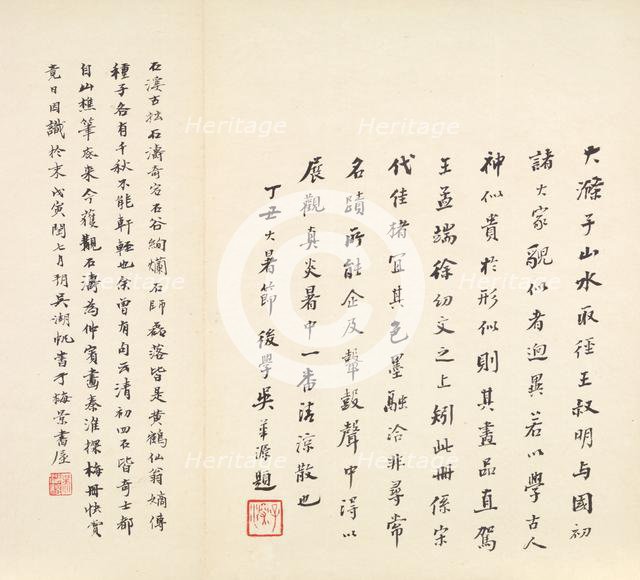 大滌子山水取徑王叔明与國初
諸大家貌似者迥異若以學古人
神似貴於形似則其畫品直駕
王孟端徐幼文之上矧此冊係宋
代佳楮宜其色墨融洽非尋常
名蹟所能企及鼙鼓聲中得以
展觀真炎暑中一番清涼散也
丁丑大暑節後學吳華源題
石溪古拙石濤奇宕石谷絢爛石師磊落皆是黃鶴仙翁嫡傳
種子各有千秋不能軒輊也余曾有句云清初四石皆奇士都
自山樵筆底來今獲觀石濤為仲賓畫秦淮探梅冊快賞
竟日因識於末戊寅閏七月朔吳湖帆書于梅景書屋
Heritage
Heritage
Heritage
Heritage
Heritage
Heritage
Heritage
Heritage